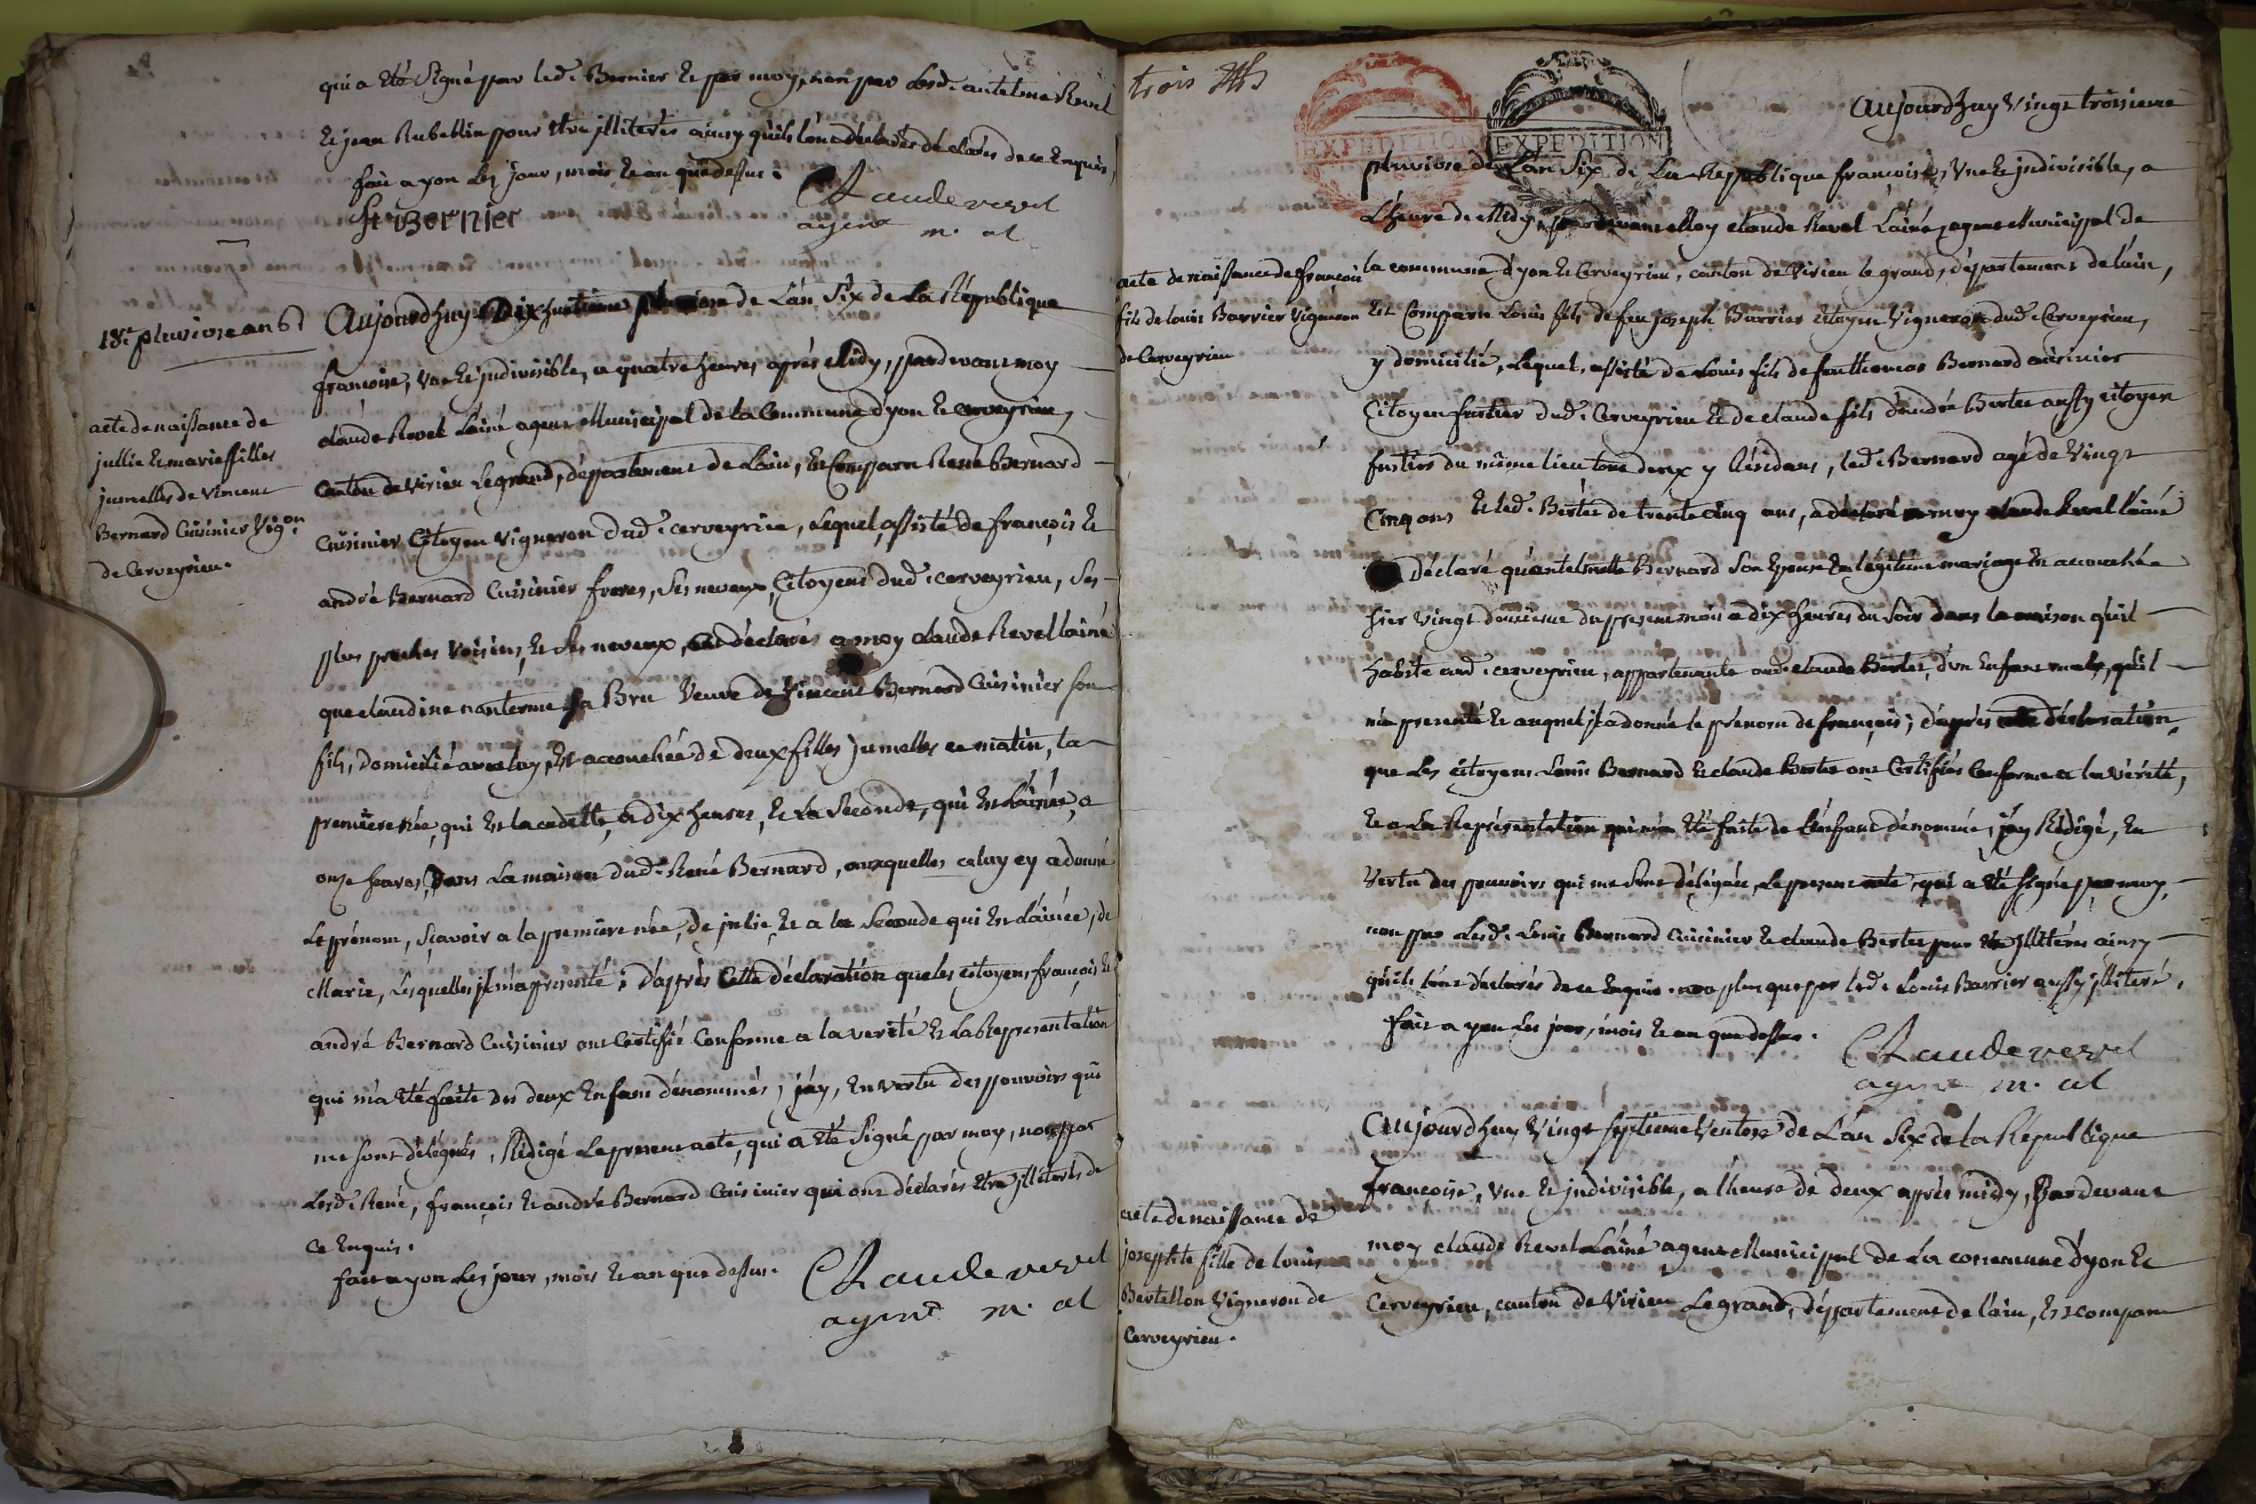 qui a eté signé par led. Bernier et par moy, non par lesd. antelme Revel
et jean Rubellin pour etre illiterés ainsy quils lont déclarés de ce enquis,
fait a yon les jour, mois et an que dessus.
St Bernier
Claude revel
agent m. al
18e pluviose an 6
Aujourdhuy Dix huitieme pluviose de Lán Six de La République
françoise, une et jndivisible, a quatre heures après Midy, pardevant moy
claude Revel Láiné agent Municipal de la Commune dyon et cerveyrieu,
Canton de Virieu Legrand, département de Láin, Est Comparu René Bernard
Cuisinier Citoyen Vigneron dud. cerveyrieu, Lequel assisté de françois et
andré Bernard Cuisinier freres, Ses neveux, Citoyens dud. cerveyrieu, Ses
plus proches Voisins, et Ses neveux, a déclaré a moy claude Revel lainé
que claudine nanterme sa Bru Veuve de Vincent Bernard Cuisinier son
fils, domicilié avec luy, Est accouchée de deux filles jumelles ce matin, la
premiere née, qui Est la cadette, a dix heures, et La Seconde, qui Est láinée, a
onze heures, Dans La maison dud. René Bernard, auxquelles celuy cy a donné
Le prénom, Sçavoir a la premiere née, de julie et a la Seconde qui Est láinée, de
Marie, Lesquelles jl má presenté; d'après Cette déclaration que les citoyens françois et
andré Bernard Cuisinier ont Certifié Conforme a la verité et La Representation
qui má eté faite des deux Enfans dénommés, jáy, En vertu des pouvoirs qui
me sont délégués, Rédigé Le present acte, qui a eté Signé par moy, non par
Lesd. René, françois et andré Bernard Cuisinier qui ont déclarés etre jlliterés de
Ce Enquis.
fait a yon Les jour, mois et an que dessus.
Claude revel
agent m. al
acte de naissance de
jullie et marie filles
jumelles de vincent
Bernard Cuisinier Vig.on
de Cerveyrieu.
trois
EXPEDITION
EXPEDITION
Aujourdhuy Vingt troisieme
pluviose de Lán Six de La République françoise, Une et jndivisible, a
Lheure de Midy, pardevant Moy claude Revel Láiné, agent Municipal de
la commune dyon et Cerveyrieu, canton de Virieu le grand, département de láin,
Est Comparu Louis fils de feu joseph Barrier citoyen Vigneron dud. Cerveyrieu,
y domicilié, Lequel, assisté de Louis fils de feu thomas Bernard cuisinier
Citoyen fustier dud. Cerveyrieu et de claude fils dandré Bertet aussy citoyen
fustier du même lieu tous deux y Résidans, led. Bernard agé de Vingt
Cinq ans et led. Bertet de trente cinq ans, a déclaré a moy claude Revel láiné
Déclaré quántelmette Bernard Son Epouse En légitime mariage Est accouchée
hier Vingt deuxieme du present mois a dix heures du Soir dans la maison quil
habite aud. cerveyrieu, appartenante aud. claude Bertet, dun Enfant male, quil
má presenté et auquel jl a donné le prénom de françois; dáprès cette déclaration,
que Les citoyens Louis Bernard et claude Bertet ont Certifiés Conforme a la Vérité,
et a La Représentation qui má eté faite de Lénfant dénommé, jáy Rédigé, En
Vertu des pouvoirs qui me Sont délégués, Le present acte, qui a eté Signé par moy,
non par Lesd. Louis Bernard Cuisinier et claude Bertet pour etre jlliterés ainsy
quils lónt déclarés de ce Enquis. non plus que par led. Louis Barrier aussy jlliteré,
fait a yon les jour, mois et an que dessus.
Claude revel
agent m. al
acte de naissance de françois
fils de louis Barrier Vigneron
de Cerveyrieu
Aujourdhuy Vingt septieme Ventose de Lán Six de la République
françoise, une et jndivisible, a lheure de deux après midy, Pardevant
moy claude Revel Láiné agent Municipal de La commune dyon et
Cerveyrieu, canton de Virieu Le grand, département de láin, Est comparu
acte de naissance de
josephte fille de louis
Bertellon Vigneron de
Cerveyrieu.